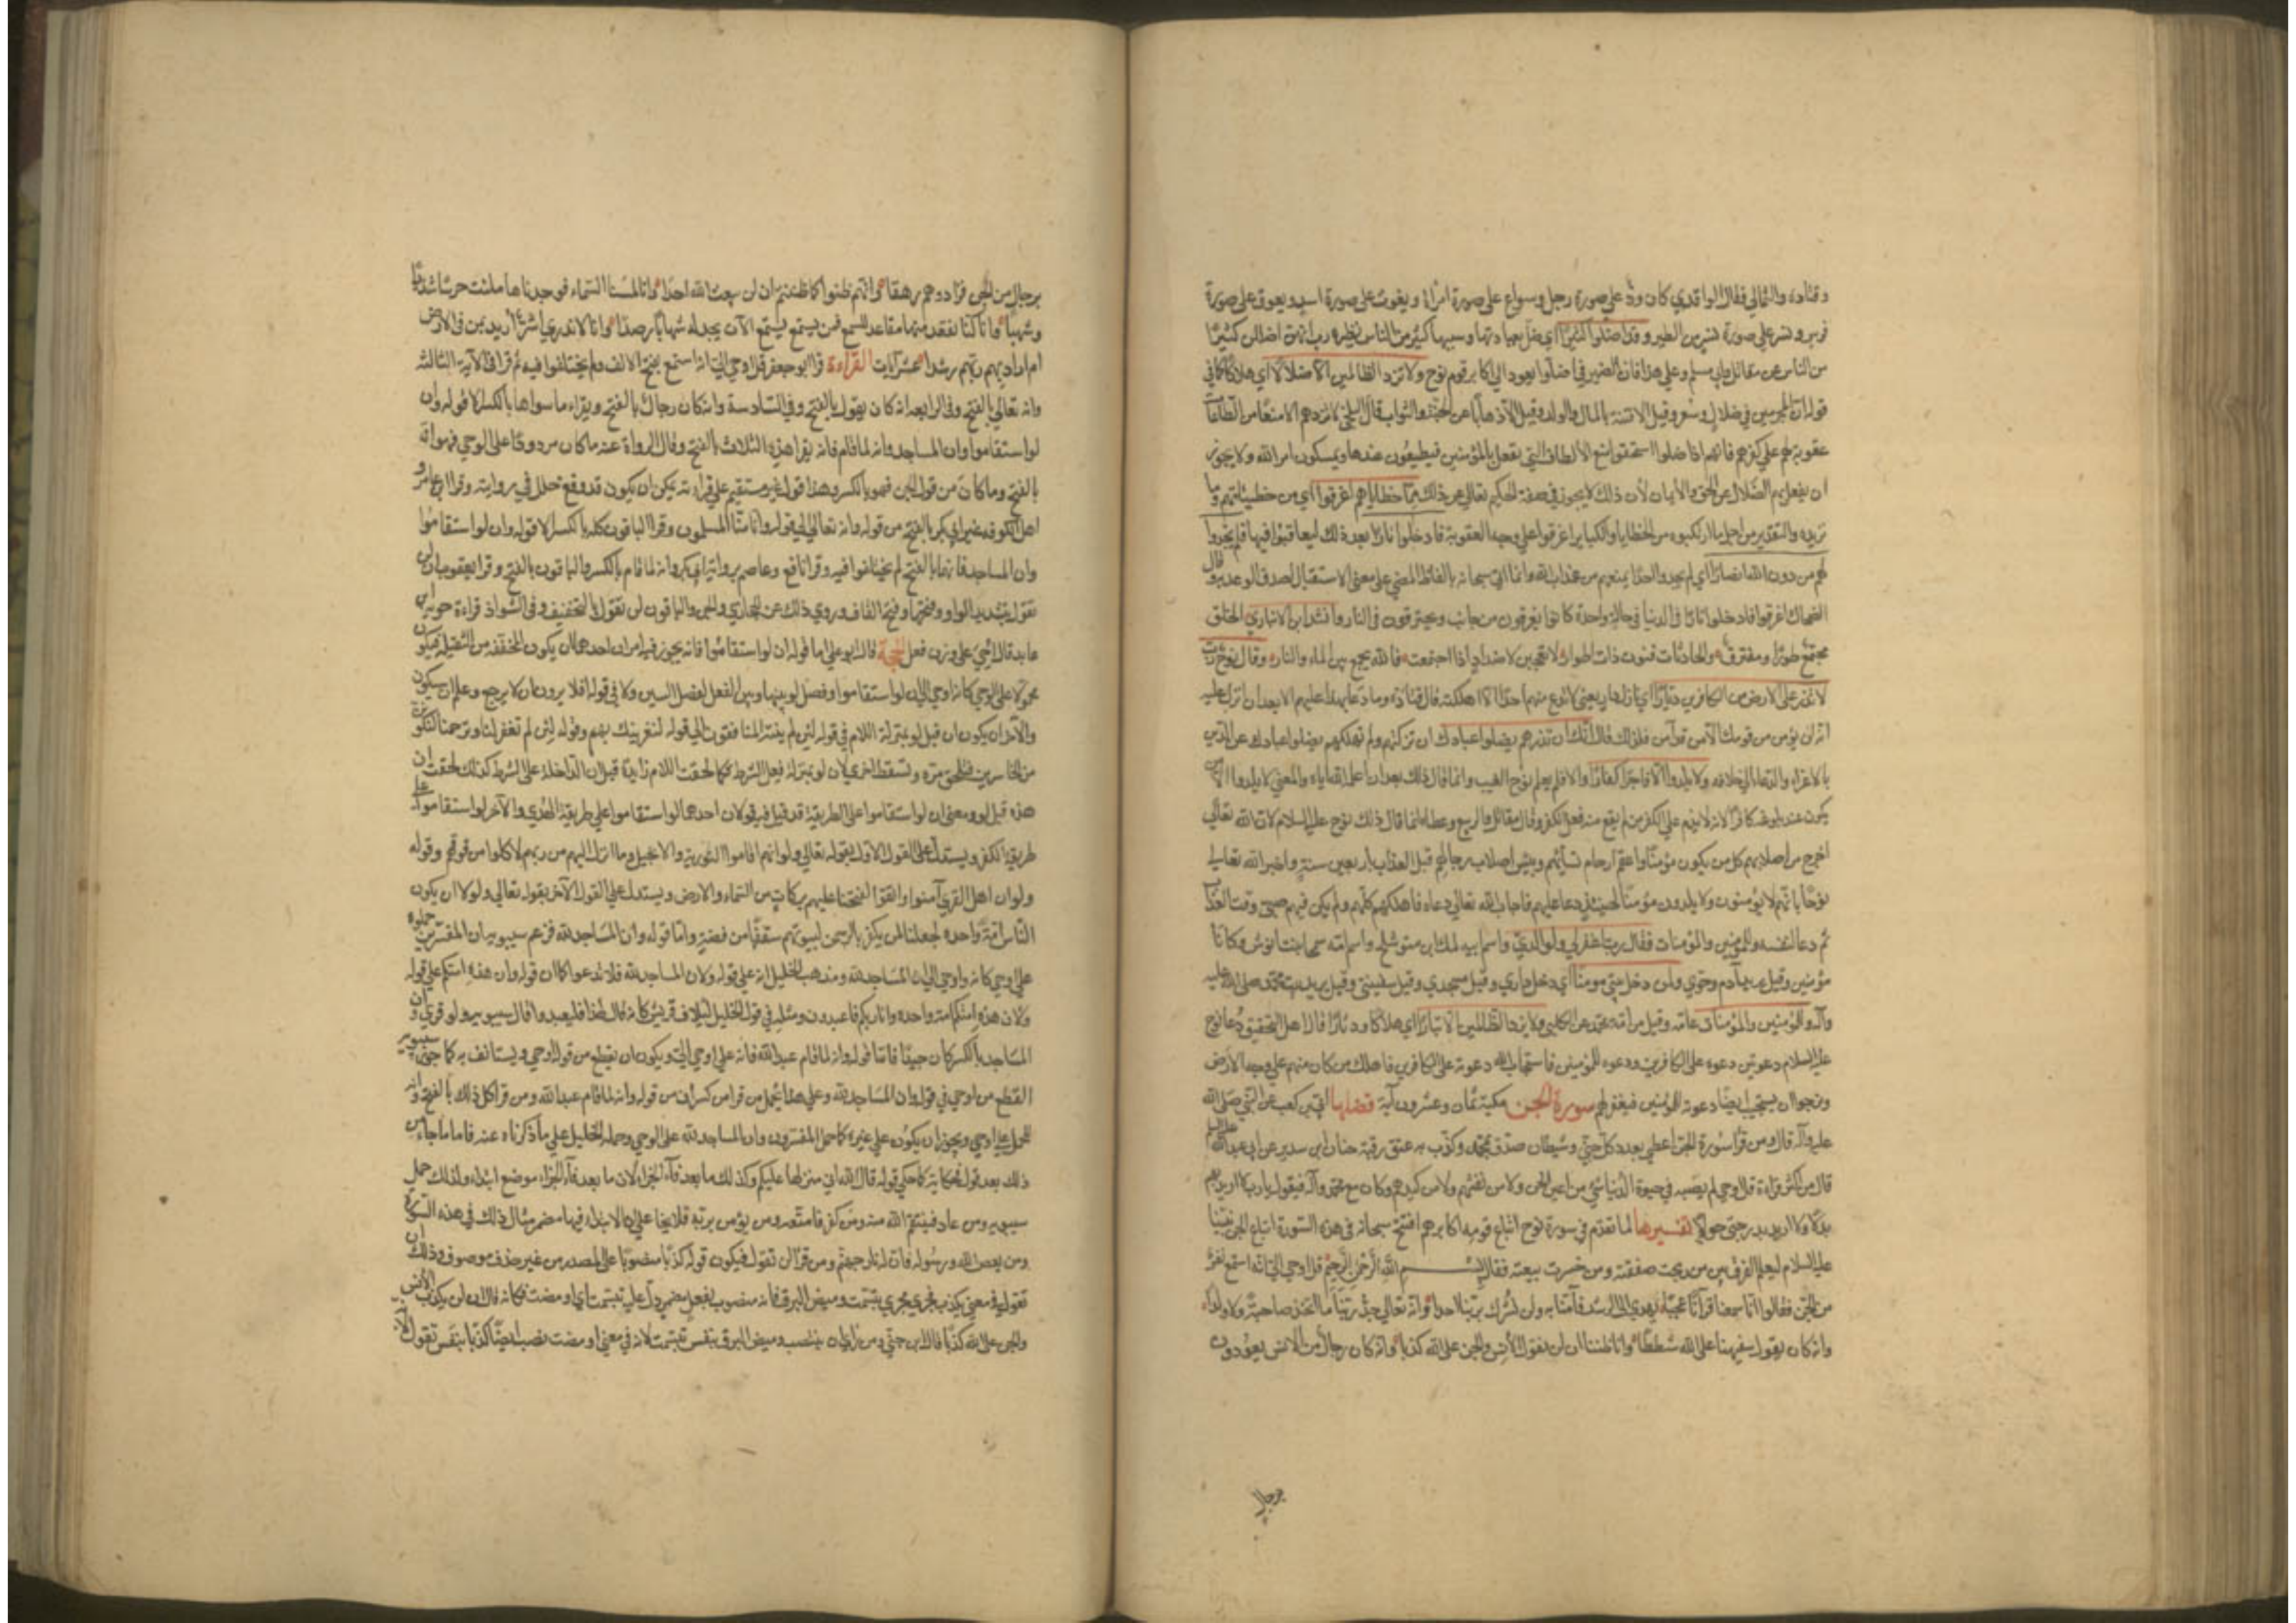 وقتادة والثمالي فقال الواقدي كان ودّ على صورة رجل وسواع على صورة امرأة ويغوث على صورة اسد ويعوق على صورة
فرس ونسر على صورة نسر من الطير وقد اضلوا كثيرًا اي ضل بعبادتها وبسببها كثير من الناس نظيره رب انهن اضللن كثيرًا
من الناس عن مقاتل وابي مسلم وعلى هذا فان الضمير في اضلوا يعود الى اكابر قوم نوح ولا تزد الظالمين الا ضلالًا اي هلاكًا كما في
قوله ان المجرمين في ضلال وسعر وقيل الا فتنة بالمال والولد وقيل الا ذهابًا عن الجنة والثواب قال البلخي لا تزدهم الا منعًا من الطاعات
عقوبة لهم على كفرهم فانهم اذا ضلوا استحقوا منع الالطاف التي تفعل بالمؤمنين فيطيعون عندها ويمسكون امر الله ولا يجوز
ان يفعل بهم الضلال عن الحق والايمان لأن ذلك لا يجوز في صفة الحكيم تعالى عن ذلك مما خطاياهم اغرقوا اي من خطيئاتهم وما
مزيدة والتقدير من اجل ما ارتكبوه من الخطايا والكباير اغرقوا على وجه العقوبة فادخلوا نارًا بعد ذلك ليعاقبوا فيها فلم يجدوا
لهم من دون الله انصارًا اي لم يجدوا احدًا يمنعهم من عذاب الله وانما اتى سبحانه بالفاظ المضي على معنى الاستقبال لصدق الوعد به وقال
الضحاك اغرقوا فادخلوا نارًا في الدنيا في حالة واحدة كانوا يغرقون من جانب ويحترقون في النار وانشد ابن الانباري الخلق
مجتمع طورًا ومفترق والحادثات فنون ذات اطوار لا تعجبن لاضداد اذا اجتمعت فالله يجمع بين الماء والنار وقال نوح رب
لا تذر على الارض من الكافرين ديارًا اي نازل دار يعني لا تدع منهم احدًا الا اهلكته قال قتادة وما دعا بهذا عليهم الا بعد ان انزل عليه
انه لن يؤمن من قومك الا من قد آمن فلذلك قال انك ان تذرهم يضلوا عبادك ان تركتهم ولم تهلكهم يضلوا عبادك عن الدين
بالاغراء والدعاء الى خلافه ولا يلدوا الا فاجرًا كفارًا والا فلم يعلم نوح الغيب وانما قال ذلك بعد ان اعلمه الله اياه والمعنى لا يلدوا الا من
يكون عند بلوغه كافرًا لانه لا يذم على الكفر من لم يقع منه فعل الكفر وقال مقاتل والربيع وعطا انما قال ذلك نوح عليه السلام لان الله تعالى
اخرج من اصلابهم كل من يكون مؤمنًا واعقم ارحام نسائهم وايبس اصلاب رجالهم قبل العذاب باربعين سنة واخبر الله تعالى
نوحًا بانهم لا يؤمنون ولا يلدون مؤمنًا فحينئذ دعا عليهم فاجاب الله تعالى دعاءه فاهلكهم كلهم ولم يكن فيهم صبي وقت العذاب
ثم دعا لنفسه وللمؤمنين والمؤمنات فقال رب اغفر لي ولوالدي واسم ابيه لمك ابن متوشلخ واسم امه سمحا بنت انوش وكانا
مؤمنين وقيل يريد آدم وحوى ولمن دخل بيتي مؤمنًا اي دخل داري وقيل مسجدي وقيل سفينتي وقيل يريد بيت محمد صلى الله عليه
وآله وللمؤمنين والمؤمنات عامة وقيل من امة محمد عن الكلبي ولا تزد الظالمين الا تبارًا اي هلاكًا ودمارًا قال اهل التحقيق دعا نوح
عليه السلام دعوتين دعوة على الكافرين ودعوة للمؤمنين فاستجاب الله دعوته على الكافرين فاهلك من كان منهم على وجه الارض
ونرجوا ان يستجيب ايضًا دعوته للمؤمنين فيغفر لهم سورة الجن مكية ثمان وعشرون آية فضلها ابي بن كعب عن النبي صلى الله
عليه وآله قال ومن قرأ سورة الجن اعطي بعدد كل جني وشيطان صدّق بمحمد وكذّب به عتق رقبة حنان ابن سدير عن ابي عبد الله عليه السلم
قال من اكثر قراءة قل اوحي لم يصبه في حيوة الدنيا شيء من اعين الجن ولا من نفثهم ولا من كيدهم وكان مع محمد وآله فيقول يا رب لا اريد بهم
بدلًا ولا اريد بدرجتي حولًا تفسيرها لما تقدم في سورة نوح اتباع قومه اكابرهم افتتح سبحانه في هذه السورة اتباع الجن نبينا
عليه السلام ليعلم الفرق بين من ربحت صفقته ومن خسرت بيعته فقال بسم الله الرحمن الرحيم قل اوحي الي انه استمع نفر
من الجن فقالوا انا سمعنا قرآنًا عجبًا يهدي الى الرشد فآمنا به ولن نشرك بربنا احدا وانه تعالى جد ربنا ما اتخذ صاحبة ولا ولدا
وانه كان يقول سفيهنا على الله شططًا وانا ظننا ان لن تقول الانس والجن على الله كذبا وانه كان رجال من الانس يعوذون
برجال
برجال من الجن فزادوهم رهقا وانهم ظنوا كما ظننتم ان لن يبعث الله احدا وانا لمسنا السماء فوجدناها ملئت حرسًا شديدًا
وشهبًا وانا كنا نقعد منها مقاعد للسمع فمن يستمع الآن يجد له شهابًا رصدًا وانا لا ندري اشر اريد بمن في الارض
ام اراد بهم ربهم رشدا عشر آيات القراءة قرا ابو جعفر قل اوحي الي انه استمع بفتح الالف ولم يختلفوا فيه ثم قرا في الآية الثالثة
وانه تعالى بالفتح وفي الرابعه انه كان يقول بالفتح وفي السادسة وانه كان رجال بالفتح ويقراء ما سواها بالكسر الا قوله وان
لو استقاموا وان المساجد وانه لما قام فانه يقرا هذه الثلاث بالفتح وقال الرواة عنه ما كان مردودًا على الوحي فهو انه
بالفتح وما كان من قول الجن فهو بالكسر وهذا قول غير مستقيم على قراءته يمكن ان يكون قد وقع خلل في روايته وقرا ابن عامر و
اهل الكوفه غير ابي بكر بالفتح من قوله وانه تعالى الى قوله وانا منا المسلمون وقرا الباقون كله بالكسر الا قوله وان لو استقاموا
وان المساجد فانهما بالفتح لم يختلفوا فيه وقرا نافع وعاصم برواية ابي بكر وانه لما قام بالكسر والباقون بالفتح وقرا يعقوب ان لن
تقول بتشديد الواو وفتحها وفتح القاف وروي ذلك عن الجحدري والحسن والباقون لن تقول بالتخفيف وفي الشواذ قراءة جوية ابن
عايد قل احي على وزن فعل الحجة قال ابو علي اما قوله ان لو استقاموا فانه يجوز فيه امران احدهما ان يكون المخففه من الثقيله فيكون
محمولًا على الوحي كانه اوحي الي ان لو استقاموا وفصل لو بينها وبين الفعل كفصل السين ولا في قوله افلا يرون ان لا يرجع وعلم ان سيكون
والآخر ان يكون ان قبل لو بمنزلة اللام في قوله لئن لم ينته المنافقون الى قوله لنغرينك بهم وقوله لئن لم تغفر لنا وترحمنا لنكونن
من الخاسرين فتلحق مرة وتسقط اخرى لان لو بمنزلة فعل الشرط فكما لحقت اللام زايدة قبل ان الداخلة على الشرط كذلك لحقت ان
هذه قبل لو ومعنى ان لو استقاموا على الطريقة قد قيل فيه قولان احدهما لو استقاموا على طريقة الهدى والآخر لو استقاموا على
طريقة الكفر ويستدل على القول الاول بقوله تعالى ولو انهم اقاموا التورية والانجيل وما انزل اليهم من ربهم لاكلوا من فوقهم وقوله
ولو ان اهل القرى آمنوا واتقوا لفتحنا عليهم بركات من السماء والارض ويستدل على القول الآخر بقوله تعالى ولولا ان يكون
الناس امة واحده لجعلنا لمن يكفر بالرحمن لبيوتهم سقفًا من فضة واما قوله وان المساجد لله فزعم سيبويه ان المفسرين حملوه
على اوحي كانه واوحي الي ان المساجد لله ومذهب الخليل انه على قوله ولان المساجد لله فلا تدعوا كما ان قوله وان هذه امتكم على قوله
ولان هذه امتكم امة واحده وانا ربكم فاعبدون ومثله في قول الخليل لايلاف قريش كانه قال لهذا فليعبدوا قال سيبويه ولو قرئ وان
المساجد بالكسر كان جيدًا فاما قوله وانه لما قام عبد الله فانه على اوحي الي ويكون ان يقطع من قوله اوحي ويستانف به كما جوز سيبويه
القطع من اوحي في قوله وان المساجد لله وعلى هذا يحمل من قرا من كسر ان من قوله وانه لما قام عبد الله ومن قرا كل ذلك بالفتح فانه
للحمل على اوحي ويجوز ان يكون على غيره كما حمل المفسرون وان المساجد لله على الوحي وحمله الخليل على ما ذكرناه عنه فاما ما جاء من
ذلك بعد قول فحكاية كما حكي قوله قال الله اني منزلها عليكم وكذلك ما بعد فاء الجزاء لان ما بعد فاء الجزاء موضع ابتداء ولذلك حمل
سيبويه ومن عاد فينتقم الله منه ومن كفر فامتعه ومن يؤمن بربه فلا يخاف على ان الابتداء فيها مضمر مثال ذلك في هذه السورة
ومن يعص الله ورسوله فان له نار جهنم ومن قرا لن تقول فيكون قوله كذبًا منصوبًا على المصدر من غير حذف موصوف وذلك ان
تقول في معنى يكذب فجرى مجرى تبسمت وميض البرق فانه منصوب بفعل مضمر دل عليه تبسمت اي اومضت فكانه قال ان لن يكذب الانس
والجن على الله كذبًا قال ابن جني ومن راى ان ينتصب وميض البرق بنفس تبسمت لانه في معنى اومضت نصب ايضًا كذبًا بنفس تقول